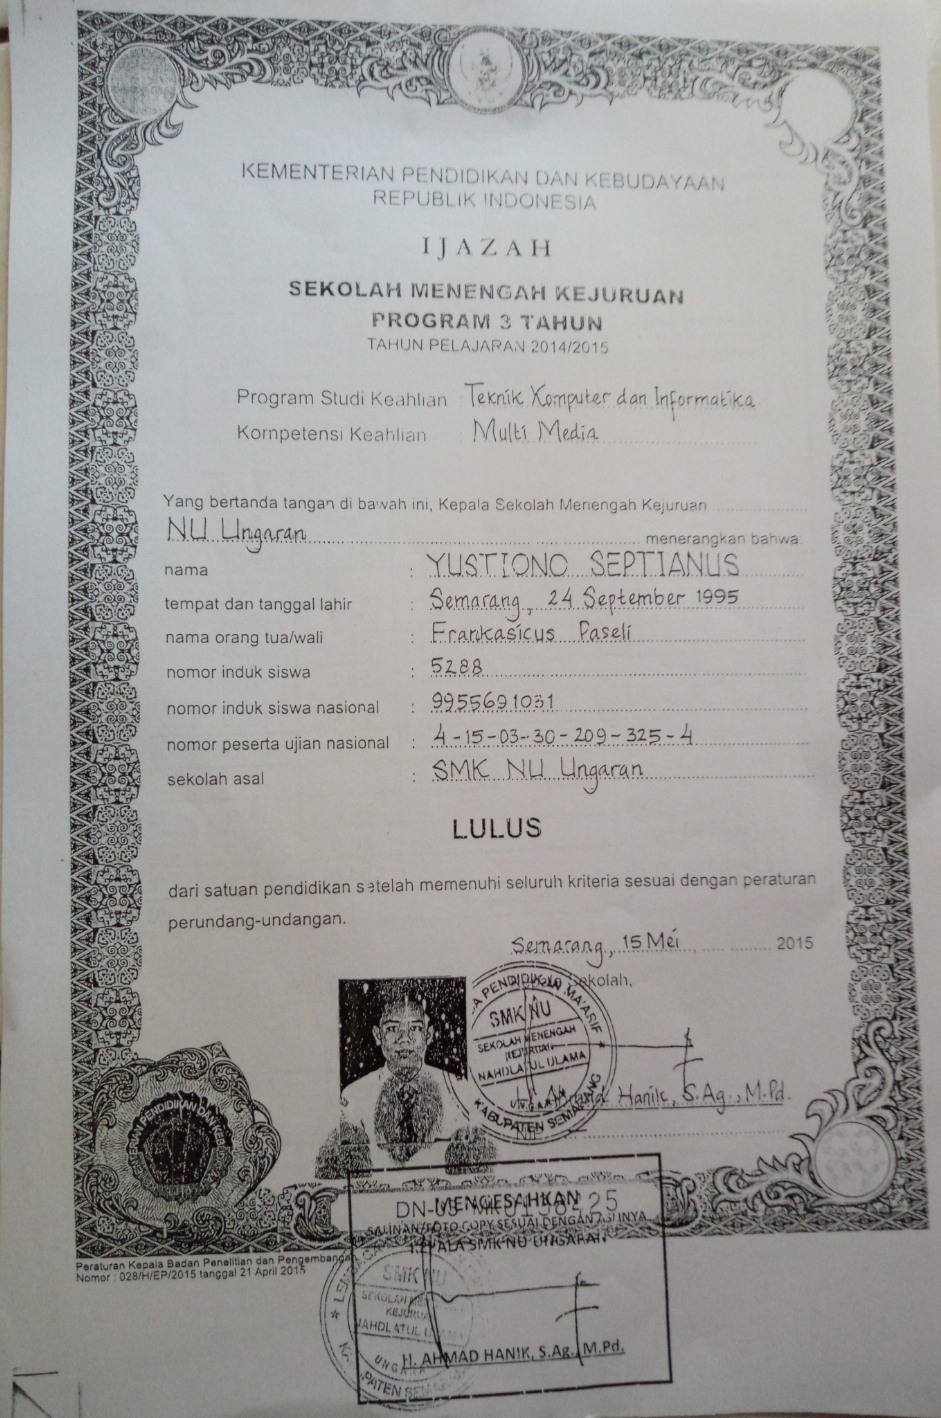 KEMENTERIAN PENDIDIKAN DAN KEBUDAYAAN
REPUBLIK INDONESIA
IJAZAH
SEKOLAH MENENGAH KEJURUAN
PROGRAM 3 TAHUN
TAHUN PELAJARAN 2014/2015
Program Studi Keahlian Teknik Komputer dan Informatika
Kompetensi Keahlian Multi Media
Yang bertanda tangan di bawah ini, Kepala Sekolah Menengah Kejuruan
NU Ungaran menerangkan bahwa:
nama : YUSTIONO SEPTIANUS
tempat dan tanggal lahir : Semarang, 24 September 1995
nama orang tua/wali : Frankasicus Paseli
nomor induk siswa : 5288
nomor induk siswa nasional : 9955691031
nomor peserta ujian nasional : 4-15-03-30-209-325-4
sekolah asal : SMK NU Ungaran
LULUS
dari satuan pendidikan setelah memenuhi seluruh kriteria sesuai dengan peraturan
perundang-undangan.
Semarang, 15 Mei 2015
Sekolah,
PENDIDIKAN MA'ARIF
SMK NU
SEKOLAH MENENGAH
KEJURUAN
NAHDLATUL ULAMA
UNGARAN
KABUPATEN SEMARANG
Hanik, S.Ag., M.Pd.
MENGESAHKAN
SALINAN/FOTO COPY SESUAI DENGAN ASLINYA
KEPALA SMK NU UNGARAN
Peraturan Kepala Badan Penelitian dan Pengembangan
Nomor : 028/H/EP/2015 tanggal 21 April 2015
SMK NU
SEKOLAH
KEJURUAN
NAHDLATUL ULAMA
UNGARAN
H. AHMAD HANIK, S.Ag., M.Pd.